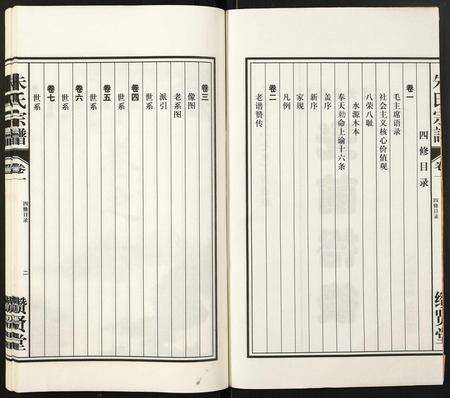 朱氏宗譜
卷一
續贤堂
四修目录
卷一
毛主席语录
社会主义核心价值观
八荣八耻
水源木本
奉天勅命上谕十六条
盖序
新序
家规
凡例
卷二
老谱赞传
卷三
像图
老系图
派引
世系
卷四
世系
卷五
世系
卷六
世系
卷七
世系
朱氏宗譜
卷一
四修目录
二
續贤堂